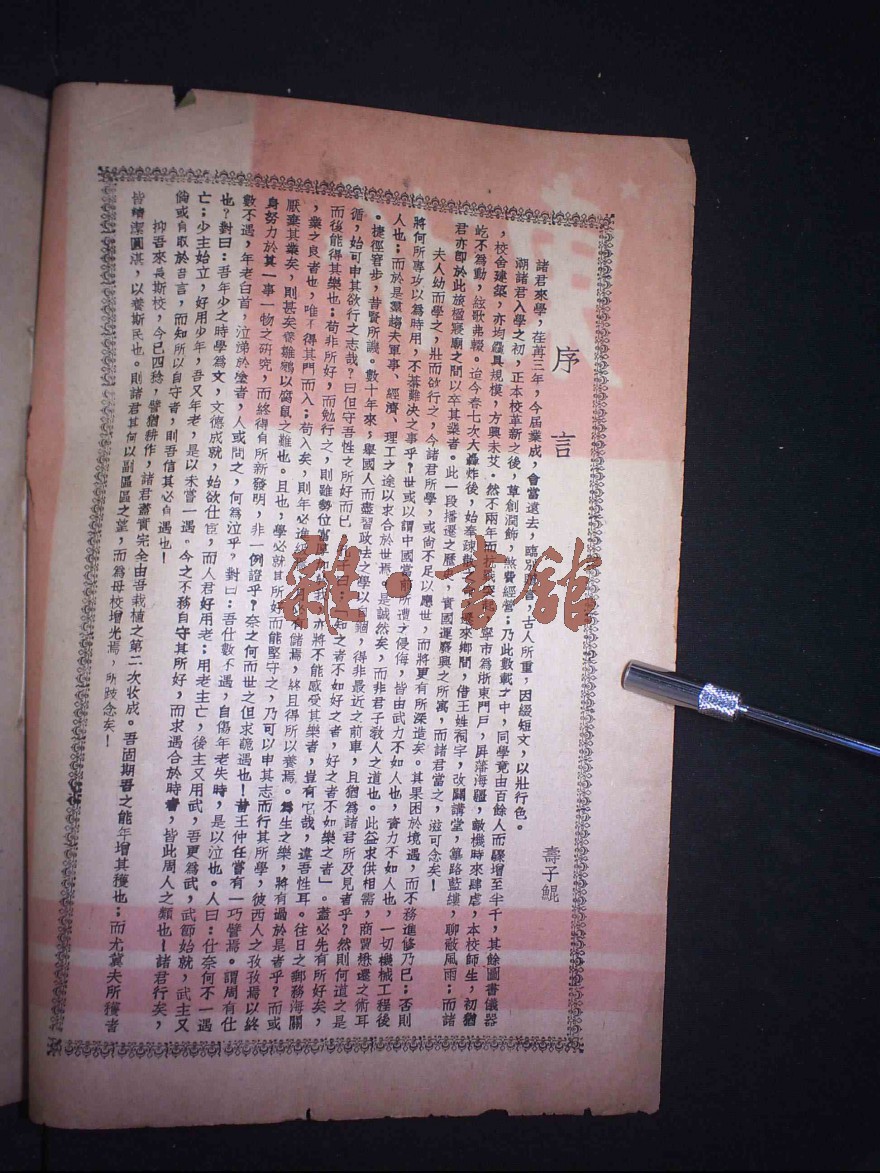 序言
壽子鯤
諸君來學，荏苒三年，今屆業成，會當遠去，臨別贈言，古人所重，因綴短文，以壯行色。
溯諸君入學之初，正本校革新之後，草創潤飾，煞費經營；乃此數載之中，同學竟由百餘人而驟增至半千，其餘圖書儀器
，校舍建築，亦均麤具規模，方興未艾。然不兩年而抗戰 寧市為浙東門戶，屏藩海疆，敵機時來肆虐，本校師生，初猶
屹不為動，絃歌弗輟。迨今春七次大轟炸後，始奉疎散之命，遷來鄉間，借王姓祠宇，改闢講堂，篳路藍縷，聊蔽風雨；而諸
君亦卽於此旅楹寢廟之間以卒其業者。此一段播遷之歷史，實國運廢興之所寓，而諸君當之，滋可念矣！
夫人幼而學之，壯而欲行之，今諸君所學，或尙不足以應世，而將更有所深造矣。其果困於境遇，而不務進修乃已；否則
將何所專攻以為時用，不綦難決之事乎？世或以謂中國當前所遭之侵侮，皆由武力不如人也，資力不如人也，一切機械工程後
人也；而於是羣趨夫軍事、經濟、理工之途以求合於世焉。是誠然矣，而非君子教人之道也。此益求供相需，商賈懋遷之術耳
。捷徑窘步，昔賢所譏。數十年來，舉國人而盡習政法之學以自錮，得非最近之前車，且猶為諸君所及見者乎？然則何道之是
循，始可申其欲行之志哉？曰但守吾性之所好而已。 子曰：「知之者不如好之者，好之者不如樂之者」。蓋必先有所好矣，
而後能得其樂也；苟非所好，而勉行之，則雖勢位富厚 亦將不能感受其樂者，豈有它哉，違吾性耳。往日之郵務海關
，業之良者也，唯不得其門而入；苟入矣，則年必進級， 有儲焉，終且得所以養焉。為生之樂，將有過於是者乎？而或
厭棄其業矣，則甚矣養雛鵷以腐鼠之難也。且也，學必就其所好而能堅守之，乃可以申其志而行其所學，彼西人之孜孜焉以終
身努力於其一事一物之研究，而終得有所新發明，非一例證乎？奈之何而世之但求詭遇也！昔王仲任嘗有一巧譬焉。謂周有仕
數不遇，年老白首，泣涕於塗者，人或問之，何為泣乎？對曰：吾仕數不遇，自傷年老失時，是以泣也。人曰：仕奈何不一遇
也？對曰：吾年少之時學為文，文德成就，始欲仕宦，而人君好用老；用老主亡，後主又用武，吾更為武，武節始就，武主又
亡；少主始立，好用少年，吾又年老，是以未嘗一遇。今之不務自守其所好，而求遇合於時者，皆此周人之類也！諸君行矣，
倘或有取於吾言，而知所以自守者，則吾信其必有遇也！
抑吾來長斯校，今已四稔，譬猶耕作，諸君蓋實完全由吾栽植之第二次收成。吾固期吾之能年增其獲也；而尤冀夫所獲者
皆 潔圓湛，以養斯民也。則諸君其何以副區區之望，而為母校增光焉，所跂念矣！
雜·書館